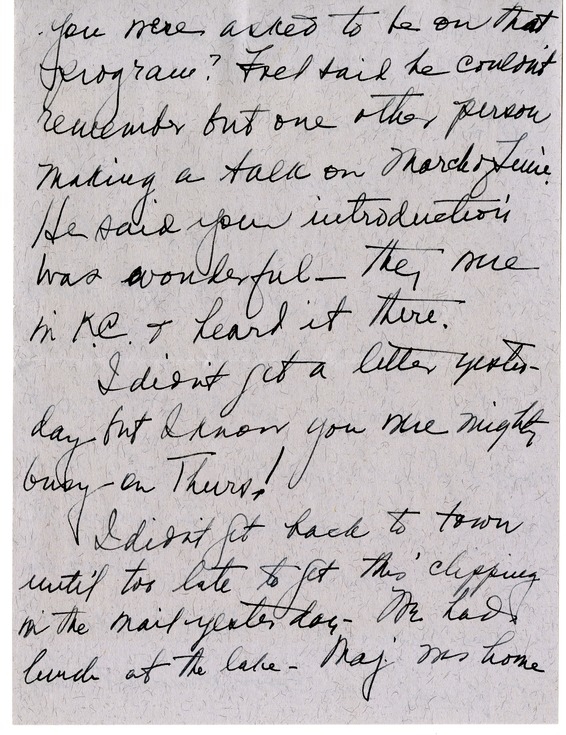 you were asked to be on that
program? Fred said he couldn't
remember but one other person
making a talk on March of Time.
He said your introduction
was wonderful — they were
in K.C. & heard it there.
I didn't get a letter yester-
day but I know you were mighty
busy on Thurs!
I didn't get back to town
until too late to get this clipping
in the mail yesterday - We had
lunch at the lake - Maj. was home